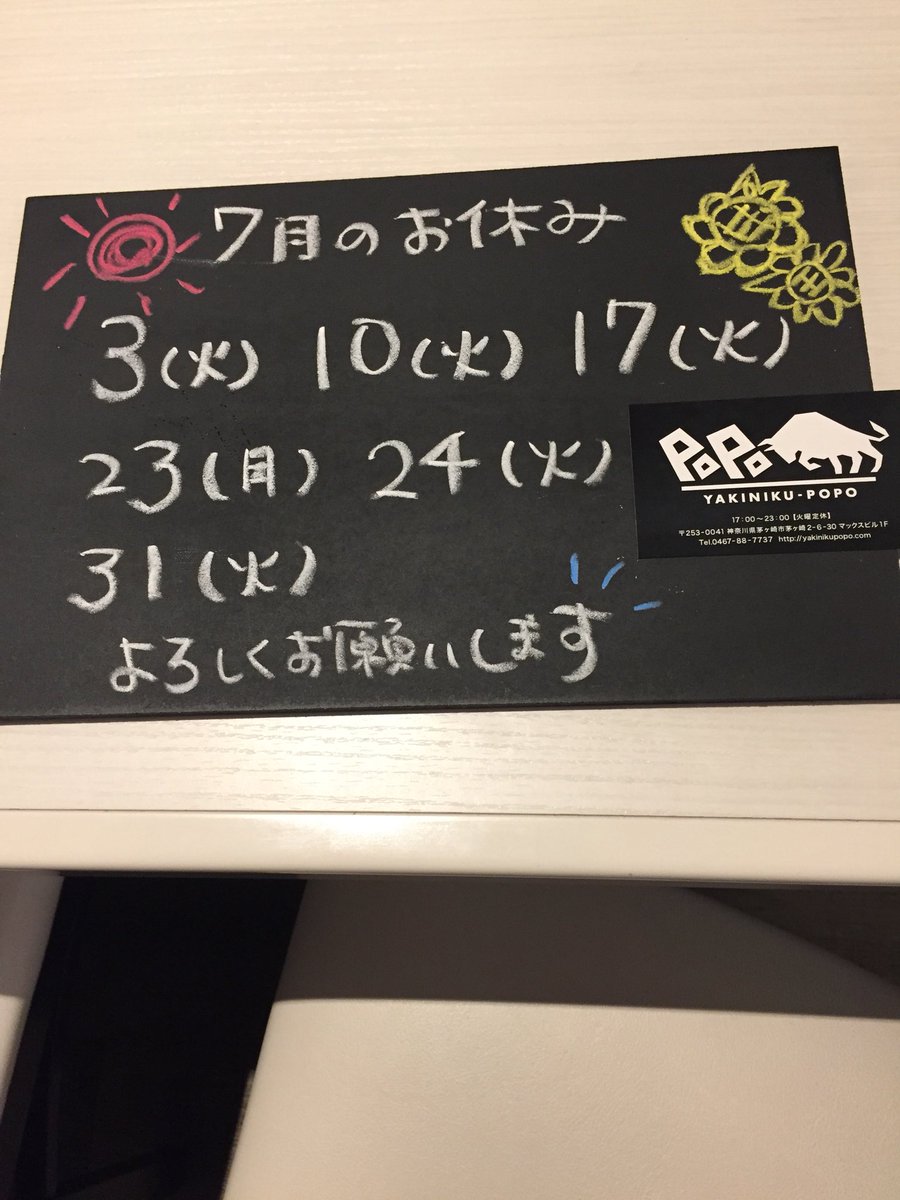 7月のお休み
3(火) 10(火) 17(火)
23(月) 24(火)
31(火)
よろしくお願いします
PoPo
YAKINIKU-POPO
17:00〜23:00【火曜定休】
〒253-0041 神奈川県茅ヶ崎市茅ヶ崎2-6-30 マックスビル1F
Tel.0467-88-7737 http://yakinikupopo.com